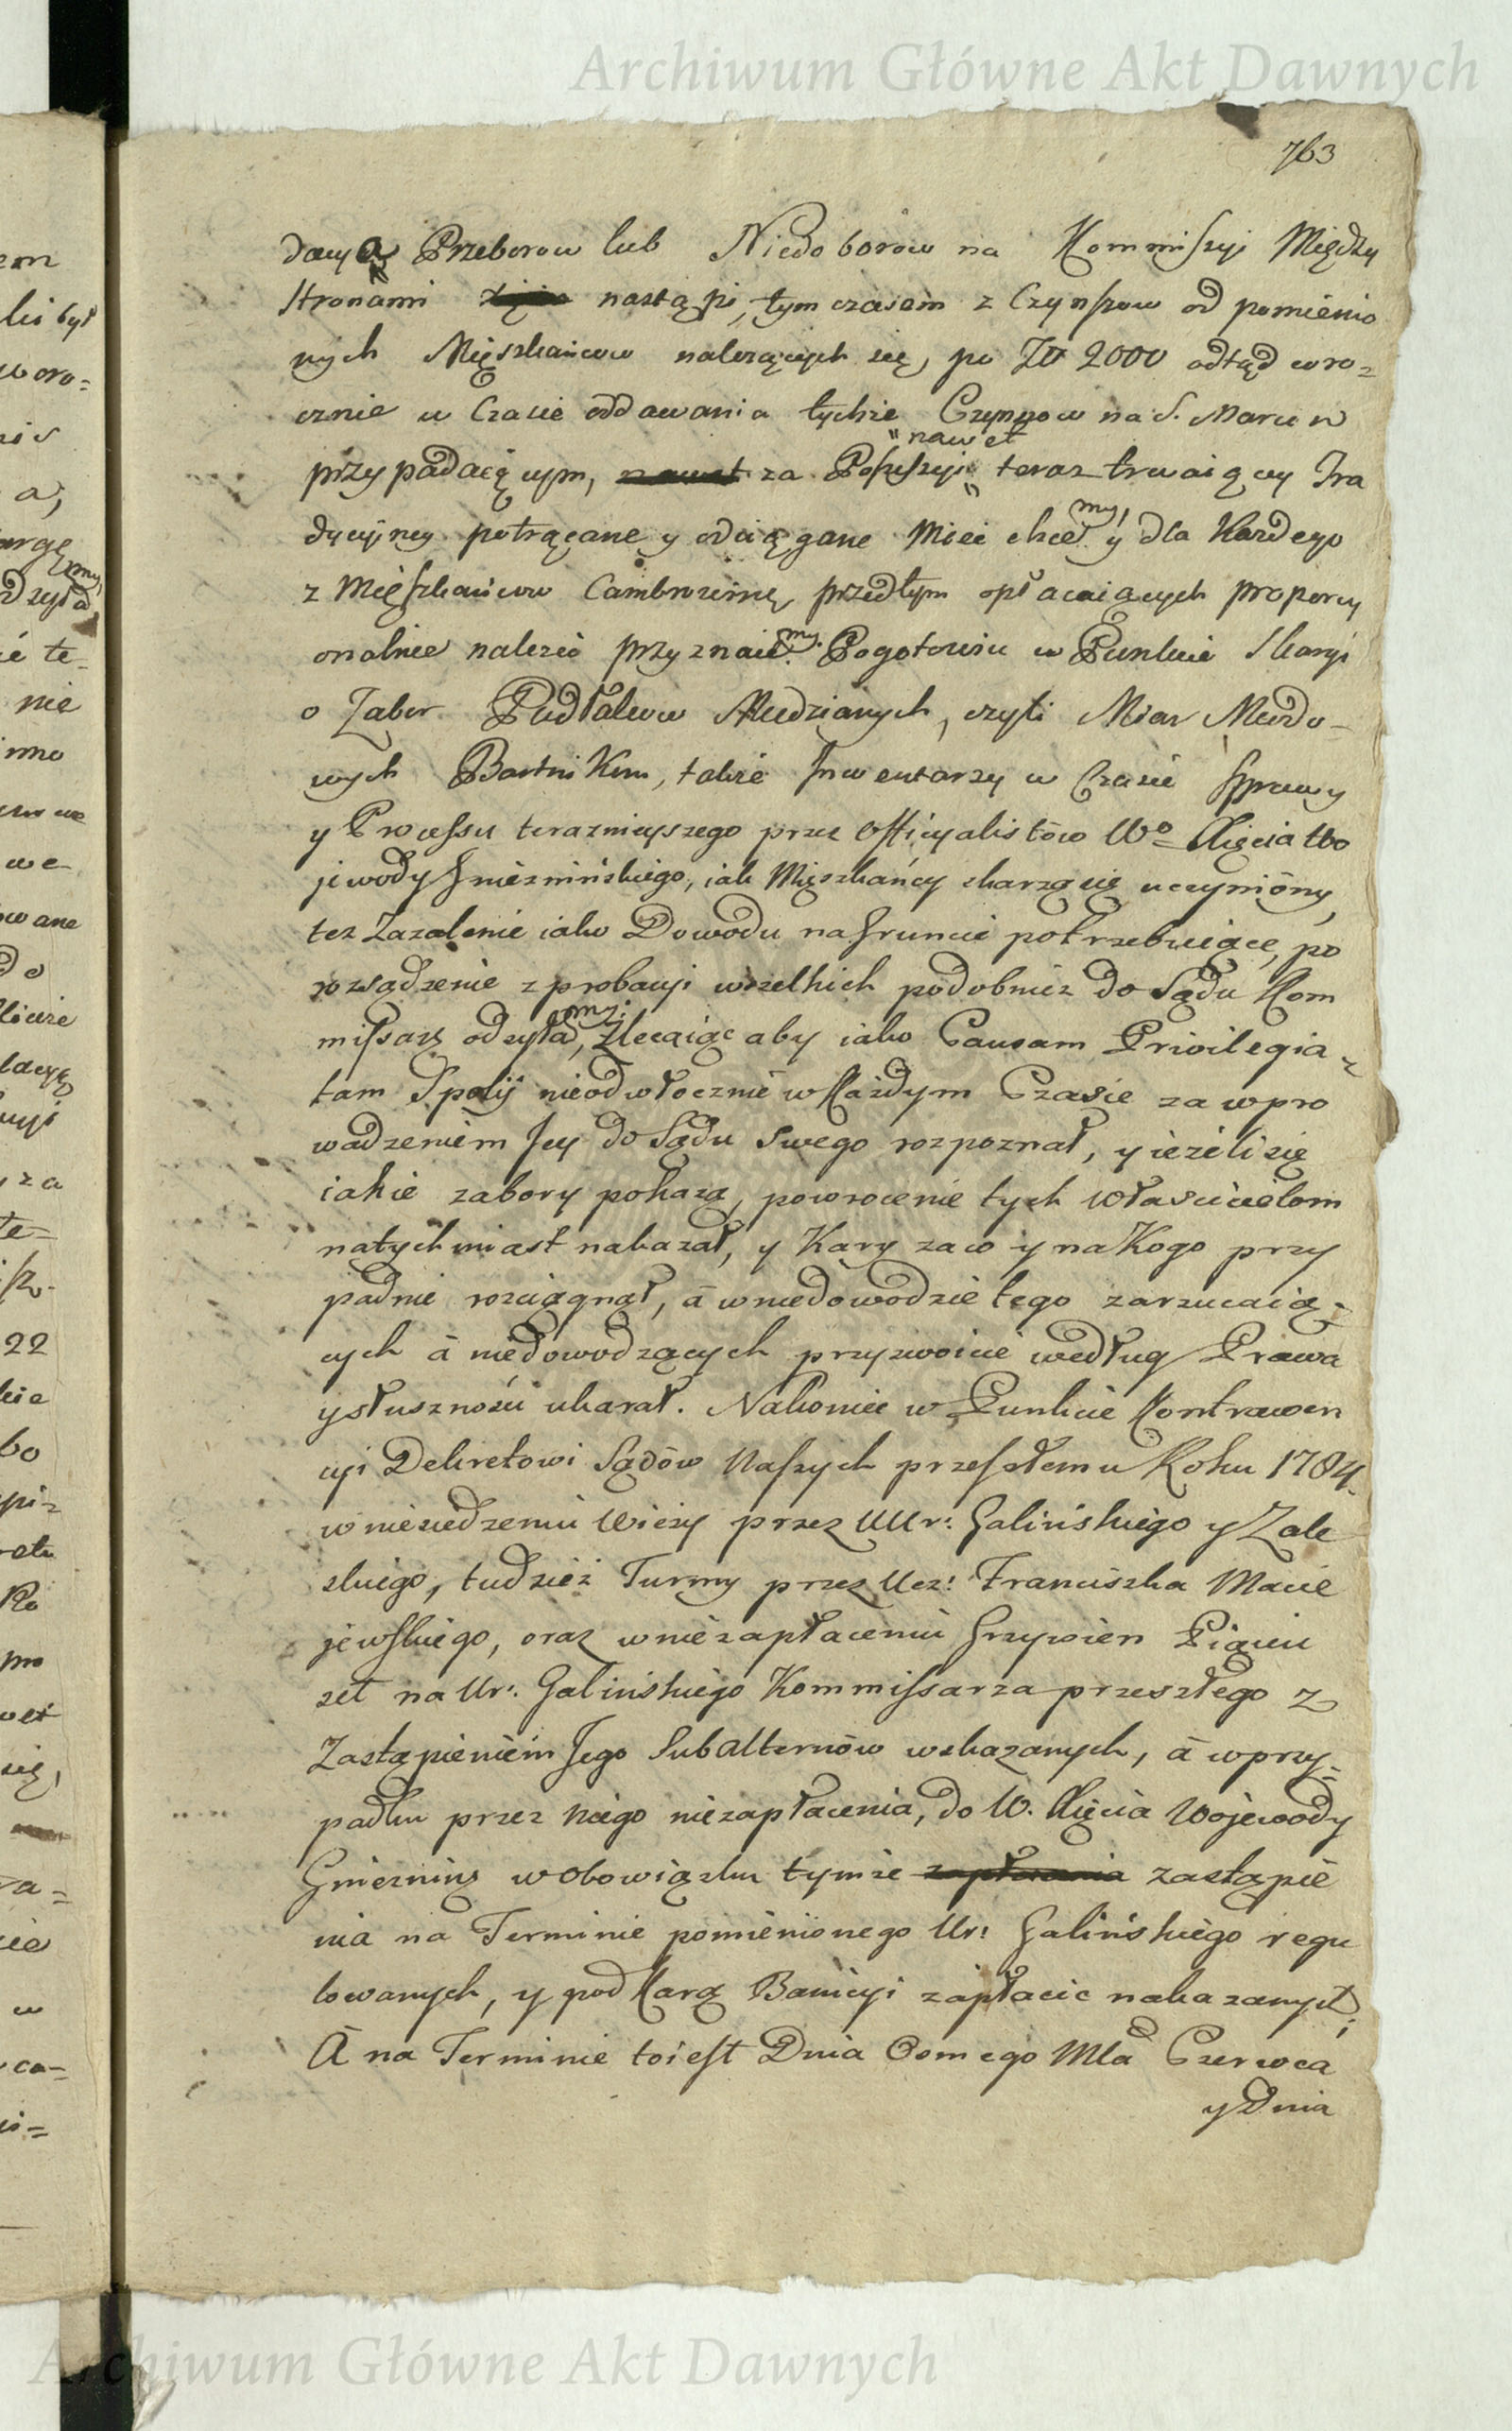 Archiwum Główne Akt Dawnych
763
Przeborow lub Niedoborow na Kommiſzyi Między
Stronami nastąpi, tym czasem z Czynſzow od pomienio
nych Mięszkańcow należących się, po Zł 2000 odtąd wro=
cznie w Czasie oddawania tychże Czynszow na S. Marcin
"nawet
przypadaiącym, nawet za Poſseſsyi" teraz trwaiącey Tra
dycyiney potrącane y odciągane Mieć chce my, y dla Każdego
z Mięſzkańcow Cambrowinę przedtym opłacaiących proporcy
onalnie należeć przyznaie my. Pogotowiu w Punkcie Skargi
o Zabor Pudłakow Miedzianych, czyli Miar Miodo-
wych Bartnikom, także Inwentarzy w Czasie Sprawy
y Proceſsu teraznieyszego przez Officyalistów Wo Xięcia Wo
jewody Gnieznińskiego, iak Mięszkańcy skarzą się uczyniony,
tez Zazalenie iako Dowodu na Gruncie potrzebuiące, po
rozsądzenie z probacyi wszelkich podobnież do Sądu Kom
miſsars odsyła my, Zlecaiąc aby iako Causam Privilegia
tam Spolij nieodwłocznie w Każdym Czasie za wpro
wadzeniem Jey do Sądu Swego rozpoznał, y ieżeli się
iakie zabory pokażą, powrocenie tych Właścicielom
natychmiast nakazał, y Kary za co y na Kogo przy
padnie rozciągnął, á wniedowodzie tego zarzucaią=
cych á niedowodzących przyzwoicie według Prawa
y słuszności ukarał. Nakoniec w Punkcie Kontrawen
cyi Dekretowi Sądów Naſzych przeſzłemu Roku 1784.
w niesiedzeniu Wieży przez UUr: Galińskiego y Zale
skiego, tudzież Turmy przez Ucz: Franciszka Macie
jewſkiego, oraz w niezapłaceniu Grzywien Pięciu
set na Ur: Galińskiego Kommiſsarza przeszłego z
Zastąpieniem Jego Subalternów wskazanych, á w przy=
padku przez niego niezapłacenia, do W. Xięcia Wojewody
Gniezning w Obowiązku tymże zapłacenia zastąpie
nia na Terminie pomienionego Ur: Galińskiego regu
lowanych, y pod Karą Banicyi zapłacić nakazanych;
A na Terminie toieſt Dnia Osmego Mca Czerwca
y Dnia
Archiwum Główne Akt Dawnych